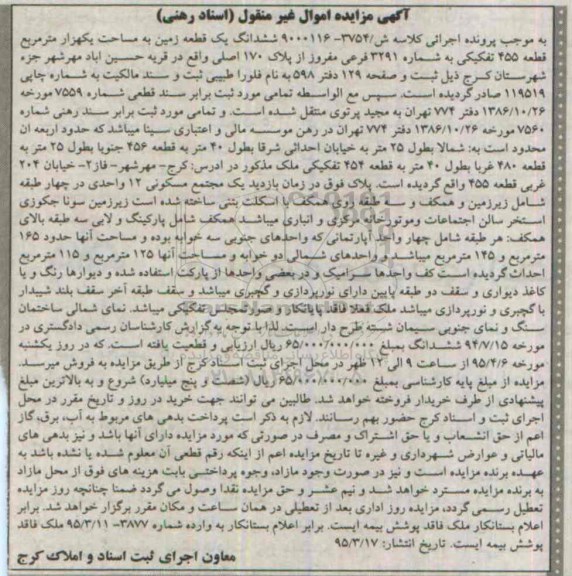 آگهی مزایده اموال غیر منقول (اسناد رهنی)
به موجب پرونده اجرائی کلاسه ش/۳۷۵۴- ۹۰۰۰۱۱۶ ششدانگ یک قطعه زمین به مساحت یکهزار مترمربع
قطعه ۴۵۵ تفکیکی به شماره ۳۲۹۱ فرعی مفروز از پلاک ۱۷۰ اصلی واقع در قریه حسین اباد مهرشهر جزء
شهرستان کرج ذیل ثبت و صفحه ۱۲۹ دفتر ۵۹۸ به نام فلورا طبیبی ثبت و سند مالکیت به شماره چاپی
۱۱۹۵۱۹ صادر گردیده است. سپس مع الواسطه تمامی مورد ثبت برابر سند قطعی شماره ۷۵۵۹ مورخه
۱۳۸۶/۱۰/۲۶ دفتر ۷۷۴ تهران به مجید پرتوی منتقل شده است. و تمامی مورد ثبت برابر سند رهنی شماره
۷۵۶۰ مورخه ۱۳۸۶/۱۰/۲۶ دفتر ۷۷۴ تهران در رهن موسسه مالی و اعتباری سینا میباشد که حدود اربعه ان
محدود است به: شمالا بطول ۲۵ متر به خیابان احداثی شرقا بطول ۴۰ متر به قطعه ۴۵۶ جنوبا بطول ۲۵ متر به
قطعه ۴۸۰ غربا بطول ۴۰ متر به قطعه ۴۵۴ تفکیکی ملک مذکور در ادرس: کرج- مهرشهر- فاز۲- خیابان ۲۰۴
غربی قطعه ۴۵۵ واقع گردیده است. پلاک فوق در زمان بازدید یک مجتمع مسکونی ۱۲ واحدی در چهار طبقه
شامل زیرزمین و همکف و سه طبقه روی همکف با اسکلت بتنی ساخته شده است زیرزمین سونا جکوزی
استخر سالن اجتماعات وموتورخانه مرکزی و انباری میباشد همکف شامل پارکینگ و لابی سه طبقه بالای
همکف: هر طبقه شامل چهار واحد آپارتمانی که واحدهای جنوبی سه خوابه بوده و مساحت آنها حدود ۱۶۵
مترمربع و ۱۴۵ مترمربع میباشد و واحدهای شمالی دو خوابه و مساحت آنها ۱۲۵ مترمربع و ۱۱۵ مترمربع
احداث گردیده است کف واحدها سرامیک و در بعضی واحدها از پارکت استفاده شده و دیوارها رنگ و یا
کاغذ دیواری و سقف دو طبقه پایین دارای نورپردازی و گچبری میباشد و سقف طبقه آخر سقف بلند شیبدار
با گچبری و نورپردازی میباشد ملک فعلا فاقد پایانکار و صورتمجلس تفکیکی میباشد. نمای شمالی ساختمان
سنگ و نمای جنوبی سیمان شسته طرح دار است. لذا با توجه به گزارش کارشناسان رسمی دادگستری در
مورخه ۹۴/۷/۱۵ ششدانگ بمبلغ ۶۵/۰۰۰/۰۰۰/۰۰۰ ریال ارزیابی و قطعیت یافته است. که در روز یکشنبه
مورخه ۹۵/۴/۶ از ساعت ۹ الی ۱۲ ظهر در محل اجرای ثبت اسناد کرج از طریق مزایده به فروش میرسد.
مزایده از مبلغ پایه کارشناسی بمبلغ ۶۵/۰۰۰/۰۰۰/۰۰۰ ریال (شصت و پنج میلیارد) شروع و به بالاترین مبلغ
پیشنهادی از طرف خریدار فروخته خواهد شد. طالبین می توانند جهت خرید در روز و تاریخ مقرر در محل
اجرای ثبت و اسناد کرج حضور بهم رسانند. لازم به ذکر است پرداخت بدهی های مربوط به آب، برق، گاز
اعم از حق انشعاب و یا حق اشتراک و مصرف در صورتی که مورد مزایده دارای آنها باشد و نیز بدهی های
مالیاتی و عوارض شهرداری و غیره تا تاریخ مزایده اعم از اینکه رقم قطعی آن معلوم شده یا نشده باشد به
عهده برنده مزایده است و نیز در صورت وجود مازاد، وجوه پرداختی بابت هزینه های فوق از محل مازاد
به برنده مزایده مسترد خواهد شد و نیم عشر و حق مزایده نقدا وصول می گردد ضمنا چنانچه روز مزایده
تعطیل رسمی گردد، مزایده روز اداری بعد از تعطیلی در همان ساعت و مکان مقرر برگزار خواهد شد. برابر
اعلام بستانکار ملک فاقد پوشش بیمه ایست. برابر اعلام بستانکار به وارده شماره ۳۸۷۷- ۹۵/۳/۱۱ ملک فاقد
پوشش بیمه ایست. تاریخ انتشار: ۹۵/۳/۱۷
معاون اجرای ثبت اسناد و املاک کرج